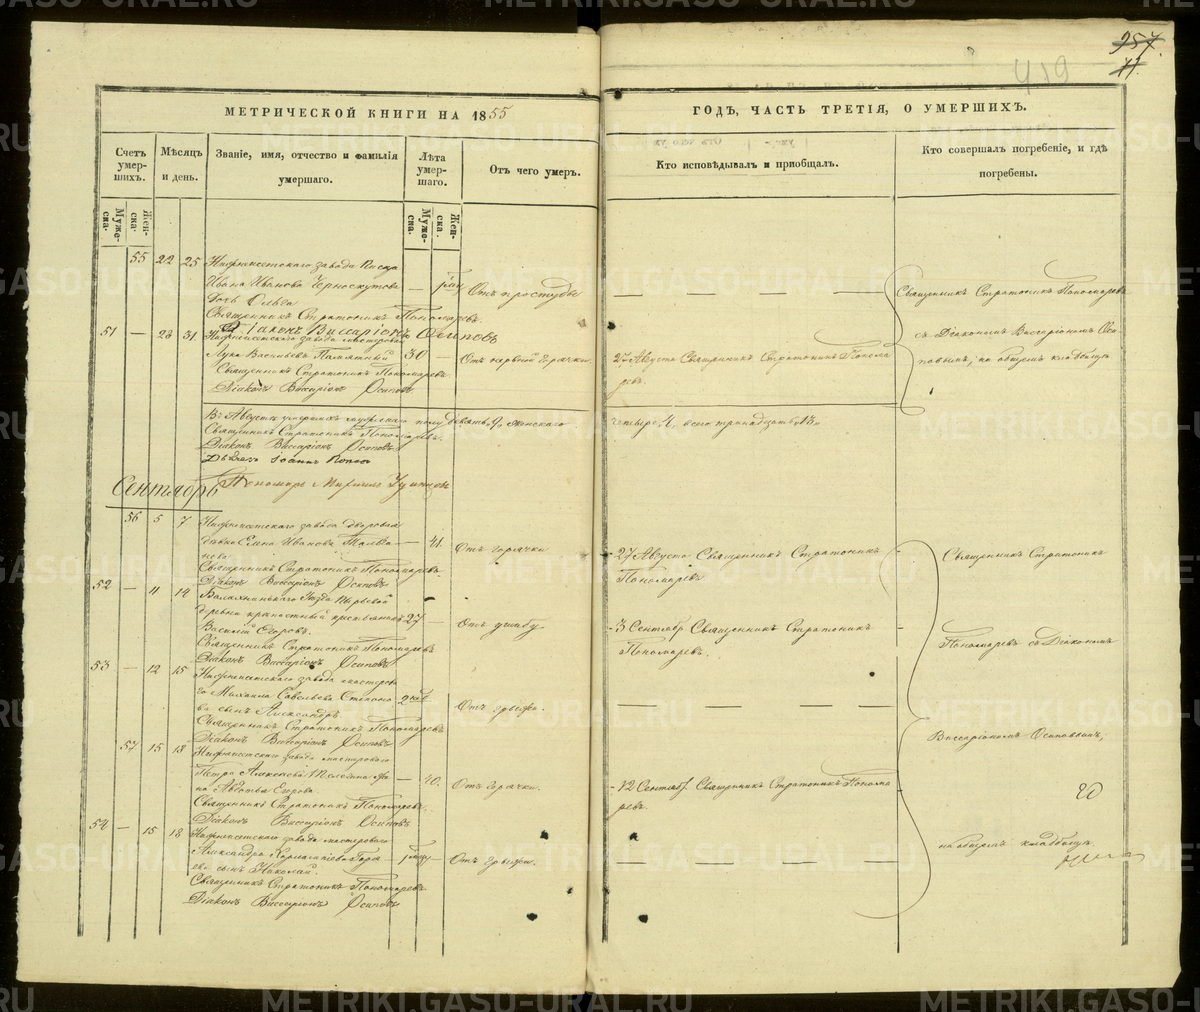 957.
419
11.
МЕТРИЧЕСКОЙ КНИГИ НА 1855
ГОДЪ, ЧАСТЬ ТРЕТІЯ, О УМЕРШИХЪ.
Счетъ умер-шихъ.
Мѣсяцъ и день.
Званіе, имя, отчество и фамилія умершаго.
Лѣта умер-шаго.
Отъ чего умеръ.
Кто исповѣдывалъ и пріобщалъ.
Кто совершалъ погребеніе, и гдѣ погребены.
Муже-ска.
Жен-ска.
Муже-ска.
Жен-ска.
55 22 25 Нижнеисетскаго завода
Ивана Иванова Черноскутова — Отъ простуды
дочь Ольга
Священникъ Стратоникъ Пономаревъ.
Діаконъ Виссаріонъ Осиповъ
Священникъ Стратоникъ Пономаревъ
съ Діакономъ Виссаріономъ Оси-
повымъ, на общемъ кладбищѣ
51 — 28 31 Нижнеисетскаго завода мастеровой
Лука Васильевъ 30 — Отъ нервной горячки
27 Августа Священникъ Стратоникъ Понома
ревъ.
Священникъ Стратоникъ Пономаревъ
Діаконъ Виссаріонъ Осиповъ
Въ Августѣ умершихъ мужескаго полу девять 9, женскаго
четыре 4, всего тринадцать 13.
Священникъ Стратоникъ Пономаревъ.
Діаконъ Виссаріонъ Осиповъ
Дьячекъ Іоаннъ Поповъ
Пономарь
Сентябрь
56 5 7 Нижнеисетскаго завода дворовая
дѣвка Елена Иванова — 41. Отъ горячки
27 Августа Священникъ Стратоникъ
Пономаревъ
Священникъ Стратоникъ Пономаревъ.
Діаконъ Виссаріонъ Осиповъ
52 — 11 14 Балахнинскаго Уѣзда
деревни крѣпостный крестьянинъ 27 — Отъ ушибу
Василій Егоровъ.
3 Сентябр Священникъ Стратоникъ
Пономаревъ.
Священникъ Стратоникъ Пономаревъ
Діаконъ Виссаріонъ Осиповъ
53 — 12 15 Нижнеисетскаго завода мастерова
го Михаила Савельева Степано
ва сынъ Александръ Отъ грыжи.
Священникъ Стратоникъ Пономаревъ
Діаконъ Виссаріонъ Осиповъ
57 15 18 Нижнеисетскаго завода мастерового
Петра Алексѣева же
на Авдотья Егорова — 40. Отъ горячки.
12 Сентябр Священникъ Стратоникъ Понома
ревъ.
Священникъ Стратоникъ Пономаревъ.
Діаконъ Виссаріонъ Осиповъ
54 — 15 18 Нижнеисетскаго завода мастерового
Александра
сынъ Николай. Отъ грыжи.
Священникъ Стратоникъ Пономаревъ
Діаконъ Виссаріонъ Осиповъ
Священникъ Стратоникъ
Пономаревъ съ Діакономъ
Виссаріономъ Осиповымъ,
на общемъ кладбищѣ
METRIKI.GASO-URAL.RU